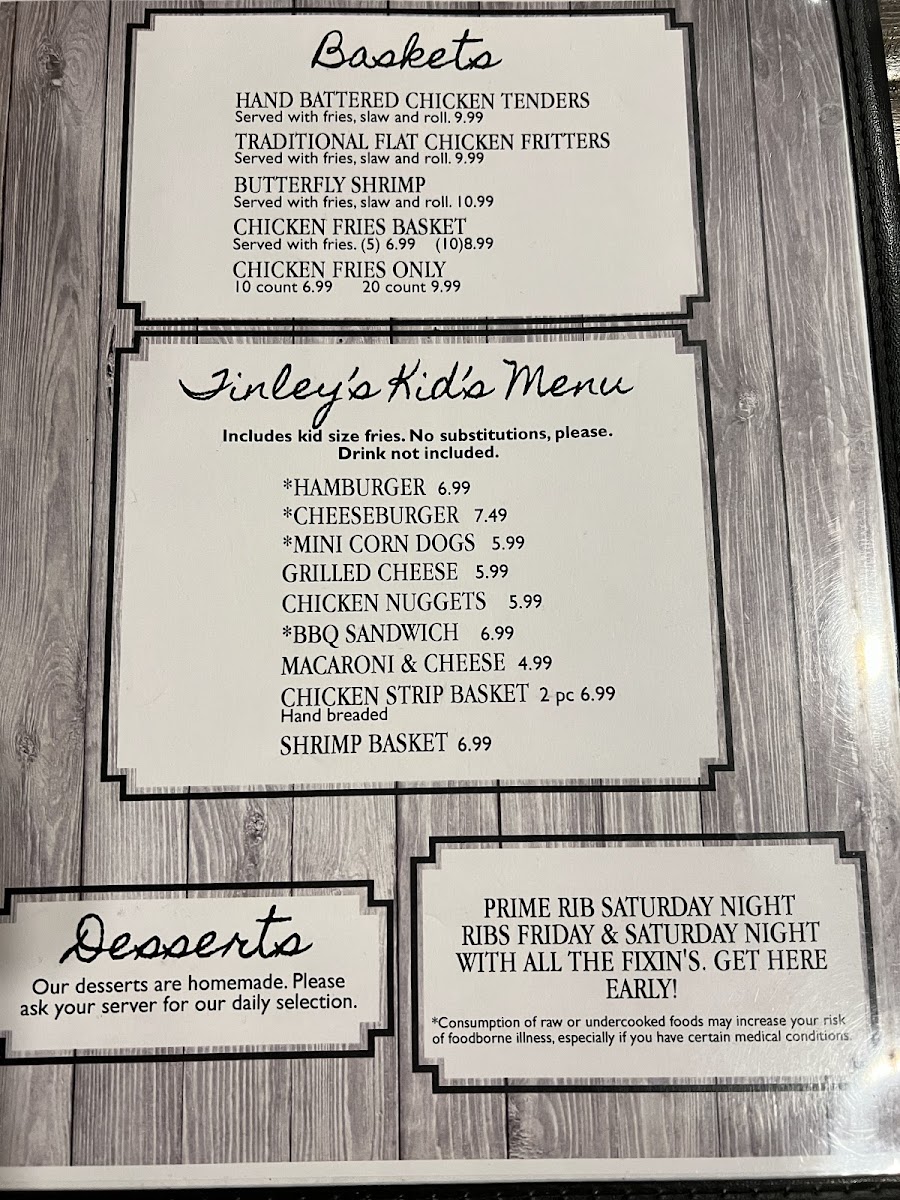 Baskets
HAND BATTERED CHICKEN TENDERS
Served with fries, slaw and roll. 9.99
TRADITIONAL FLAT CHICKEN FRITTERS
Served with fries, slaw and roll. 9.99
BUTTERFLY SHRIMP
Served with fries, slaw and roll. 10.99
CHICKEN FRIES BASKET
Served with fries. (5) 6.99 (10)8.99
CHICKEN FRIES ONLY
10 count 6.99 20 count 9.99
Finley's Kid's Menu
Includes kid size fries. No substitutions, please.
Drink not included.
*HAMBURGER 6.99
*CHEESEBURGER 7.49
*MINI CORN DOGS 5.99
GRILLED CHEESE 5.99
CHICKEN NUGGETS 5.99
*BBQ SANDWICH 6.99
MACARONI & CHEESE 4.99
CHICKEN STRIP BASKET 2 pc 6.99
Hand breaded
SHRIMP BASKET 6.99
Desserts
Our desserts are homemade. Please
ask your server for our daily selection.
PRIME RIB SATURDAY NIGHT
RIBS FRIDAY & SATURDAY NIGHT
WITH ALL THE FIXIN'S. GET HERE
EARLY!
*Consumption of raw or undercooked foods may increase your risk
of foodborne illness, especially if you have certain medical conditions.